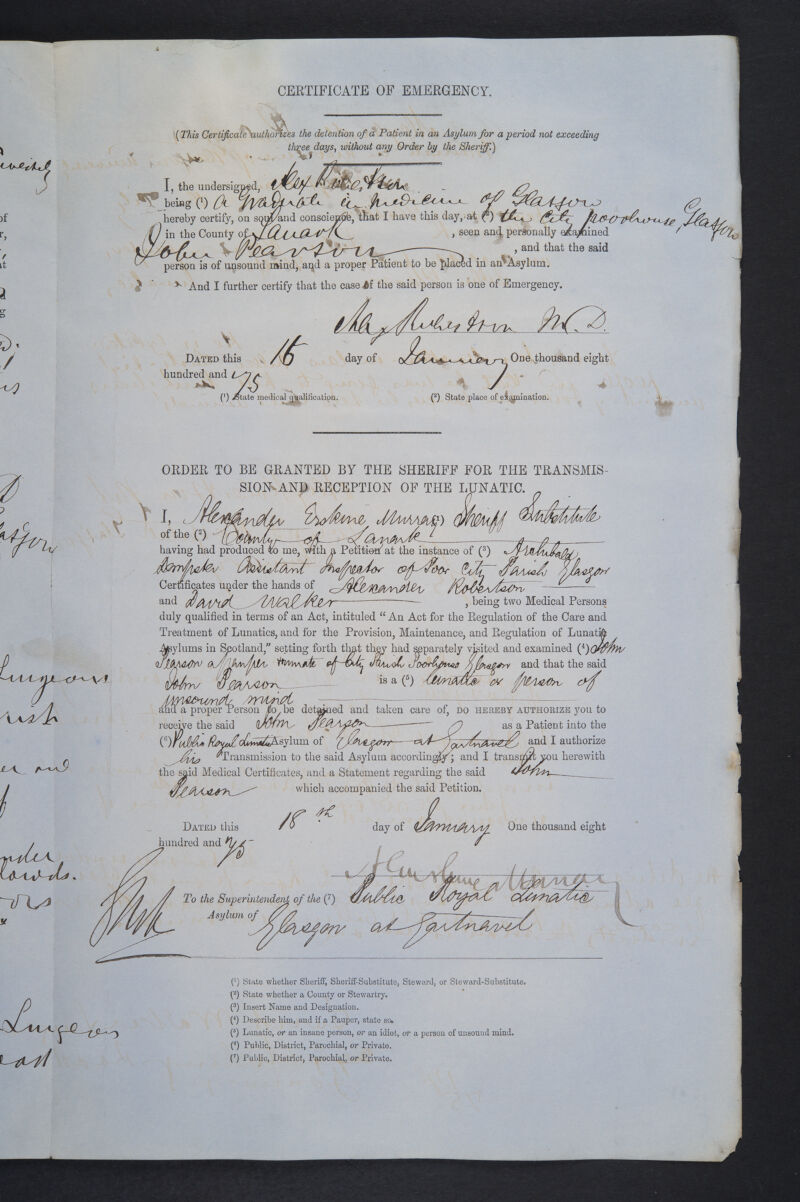 CERTIFICATE OF EMERGENCY.
(This Certificate authorizes the detention of a Patient in an Asylum for a period not exceeding
three days, without any Order by the Sheriff.)
I, the undersigned, Alex Robertson
being (¹) A Graduate in Medicine of Glasgow
hereby certify, on soul and conscience, that I have this day, at (²) the City poorhouse, Glasgow
in the County of Lanark, seen and personally examined
John Pearson, and that the said
person is of unsound mind, and a proper Patient to be placed in an Asylum.
And I further certify that the case of the said person is one of Emergency.
Alex Robertson M.D.
DATED this 16 day of January One thousand eight
hundred and 75
(¹) State medical qualification. (²) State place of examination.
ORDER TO BE GRANTED BY THE SHERIFF FOR THE TRANSMIS-
SION AND RECEPTION OF THE LUNATIC.
I, Alexander Erskine Murray (¹) Sheriff Substitute
of the (²) County of Lanark
having had produced to me, with a Petition at the instance of (³) Archibald
Dempster Assistant Inspector of Poor City Parish Glasgow
Certificates under the hands of Alexander Robertson
and David Walker, being two Medical Persons
duly qualified in terms of an Act, intituled “An Act for the Regulation of the Care and
Treatment of Lunatics, and for the Provision, Maintenance, and Regulation of Lunatic
Asylums in Scotland,” setting forth that they had separately visited and examined (⁴) John
Pearson a pauper inmate of City Parish Poorhouse Glasgow and that the said
John Pearson is a (⁵) lunatic or person of
unsound mind
and a proper Person to be detained and taken care of, DO HEREBY AUTHORIZE you to
receive the said John Pearson as a Patient into the
(⁶) Public Royal Lunatic Asylum of Glasgow at Gartnavel and I authorize
his Transmission to the said Asylum accordingly; and I transmit you herewith
the said Medical Certificates, and a Statement regarding the said John
Pearson which accompanied the said Petition.
DATED this 18th day of January One thousand eight
hundred and 75
To the Superintendent of the (⁷) Public Royal Lunatic
Asylum of Glasgow at Gartnavel
(¹) State whether Sheriff, Sheriff-Substitute, Steward, or Steward-Substitute.
(²) State whether a County or Stewartry.
(³) Insert Name and Designation.
(⁴) Describe him, and if a Pauper, state so.
(⁵) Lunatic, or an insane person, or an idiot, or a person of unsound mind.
(⁶) Public, District, Parochial, or Private.
(⁷) Public, District, Parochial, or Private.